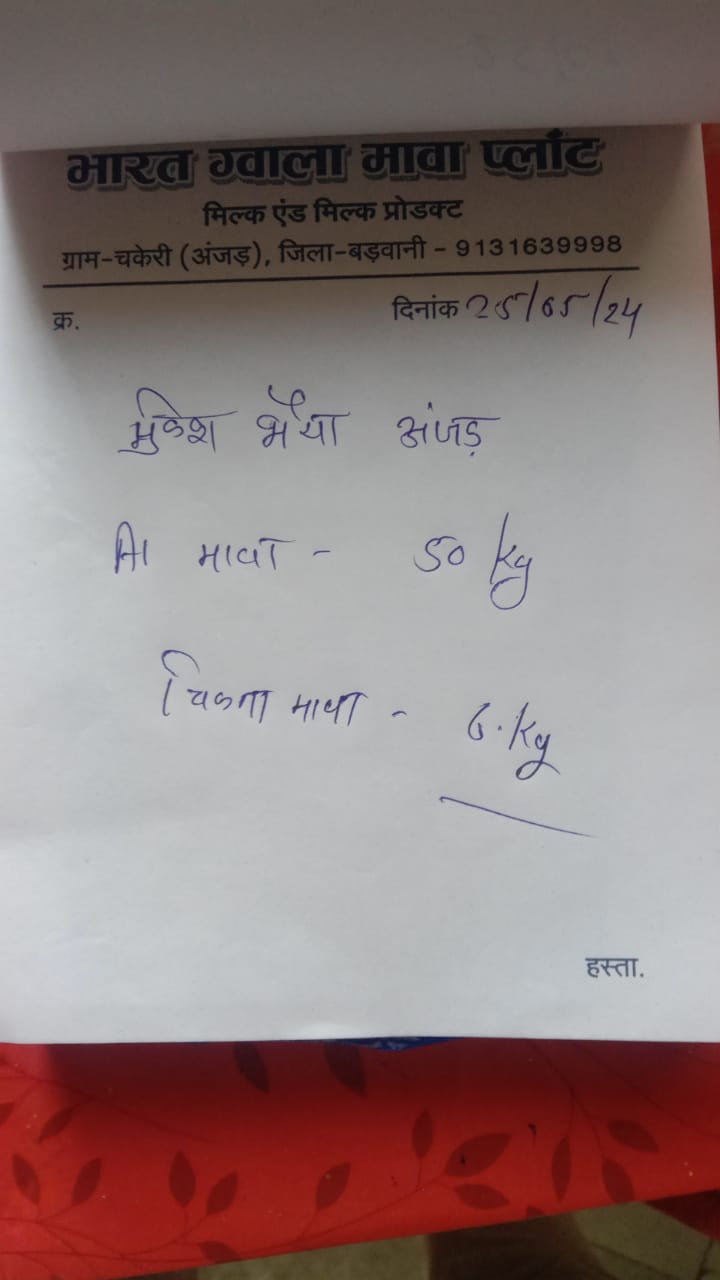 भारत ग्वाला मावा प्लाँट
मिल्क एंड मिल्क प्रोडक्ट
ग्राम-चकेरी (अंजड़), जिला-बड़वानी - 9131639998
क्र. दिनांक 25/05/24
मुकेश भैया अंजड़
मावा - 50 kg
चिकना मावा - 6.kg
हस्ता.